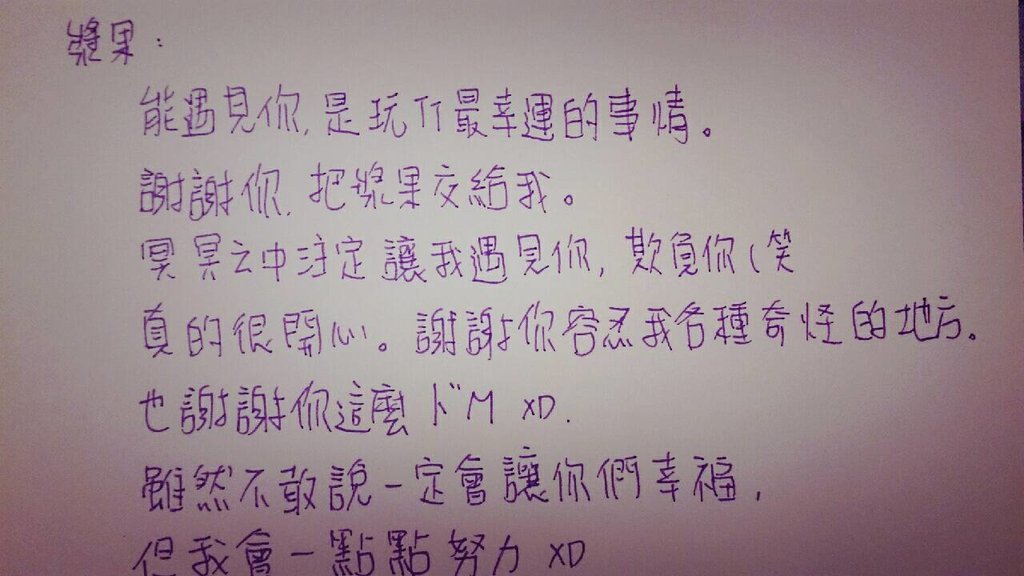 漿果：
能遇見你，是玩TT最幸運的事情。
謝謝你，把漿果交給我。
冥冥之中注定讓我遇見你，欺負你(笑
真的很開心。謝謝你容忍我各種奇怪的地方。
也謝謝你這麼ドM XD.
雖然不敢說一定會讓你們幸福，
但我會一點點努力 XD